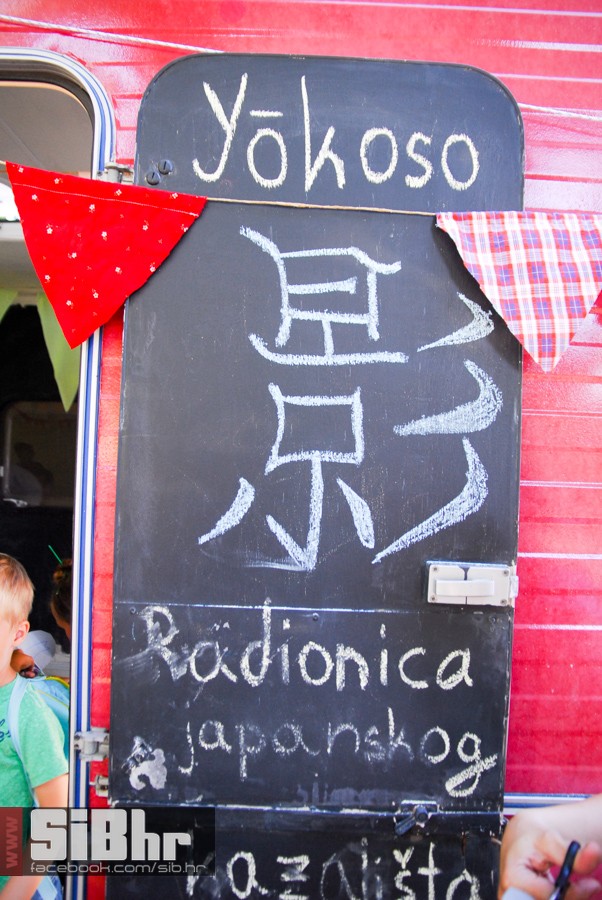 Yōkoso
影
Radionica
japanskog
kazališta
www.
SiBhr
facebook.com/sib.hr